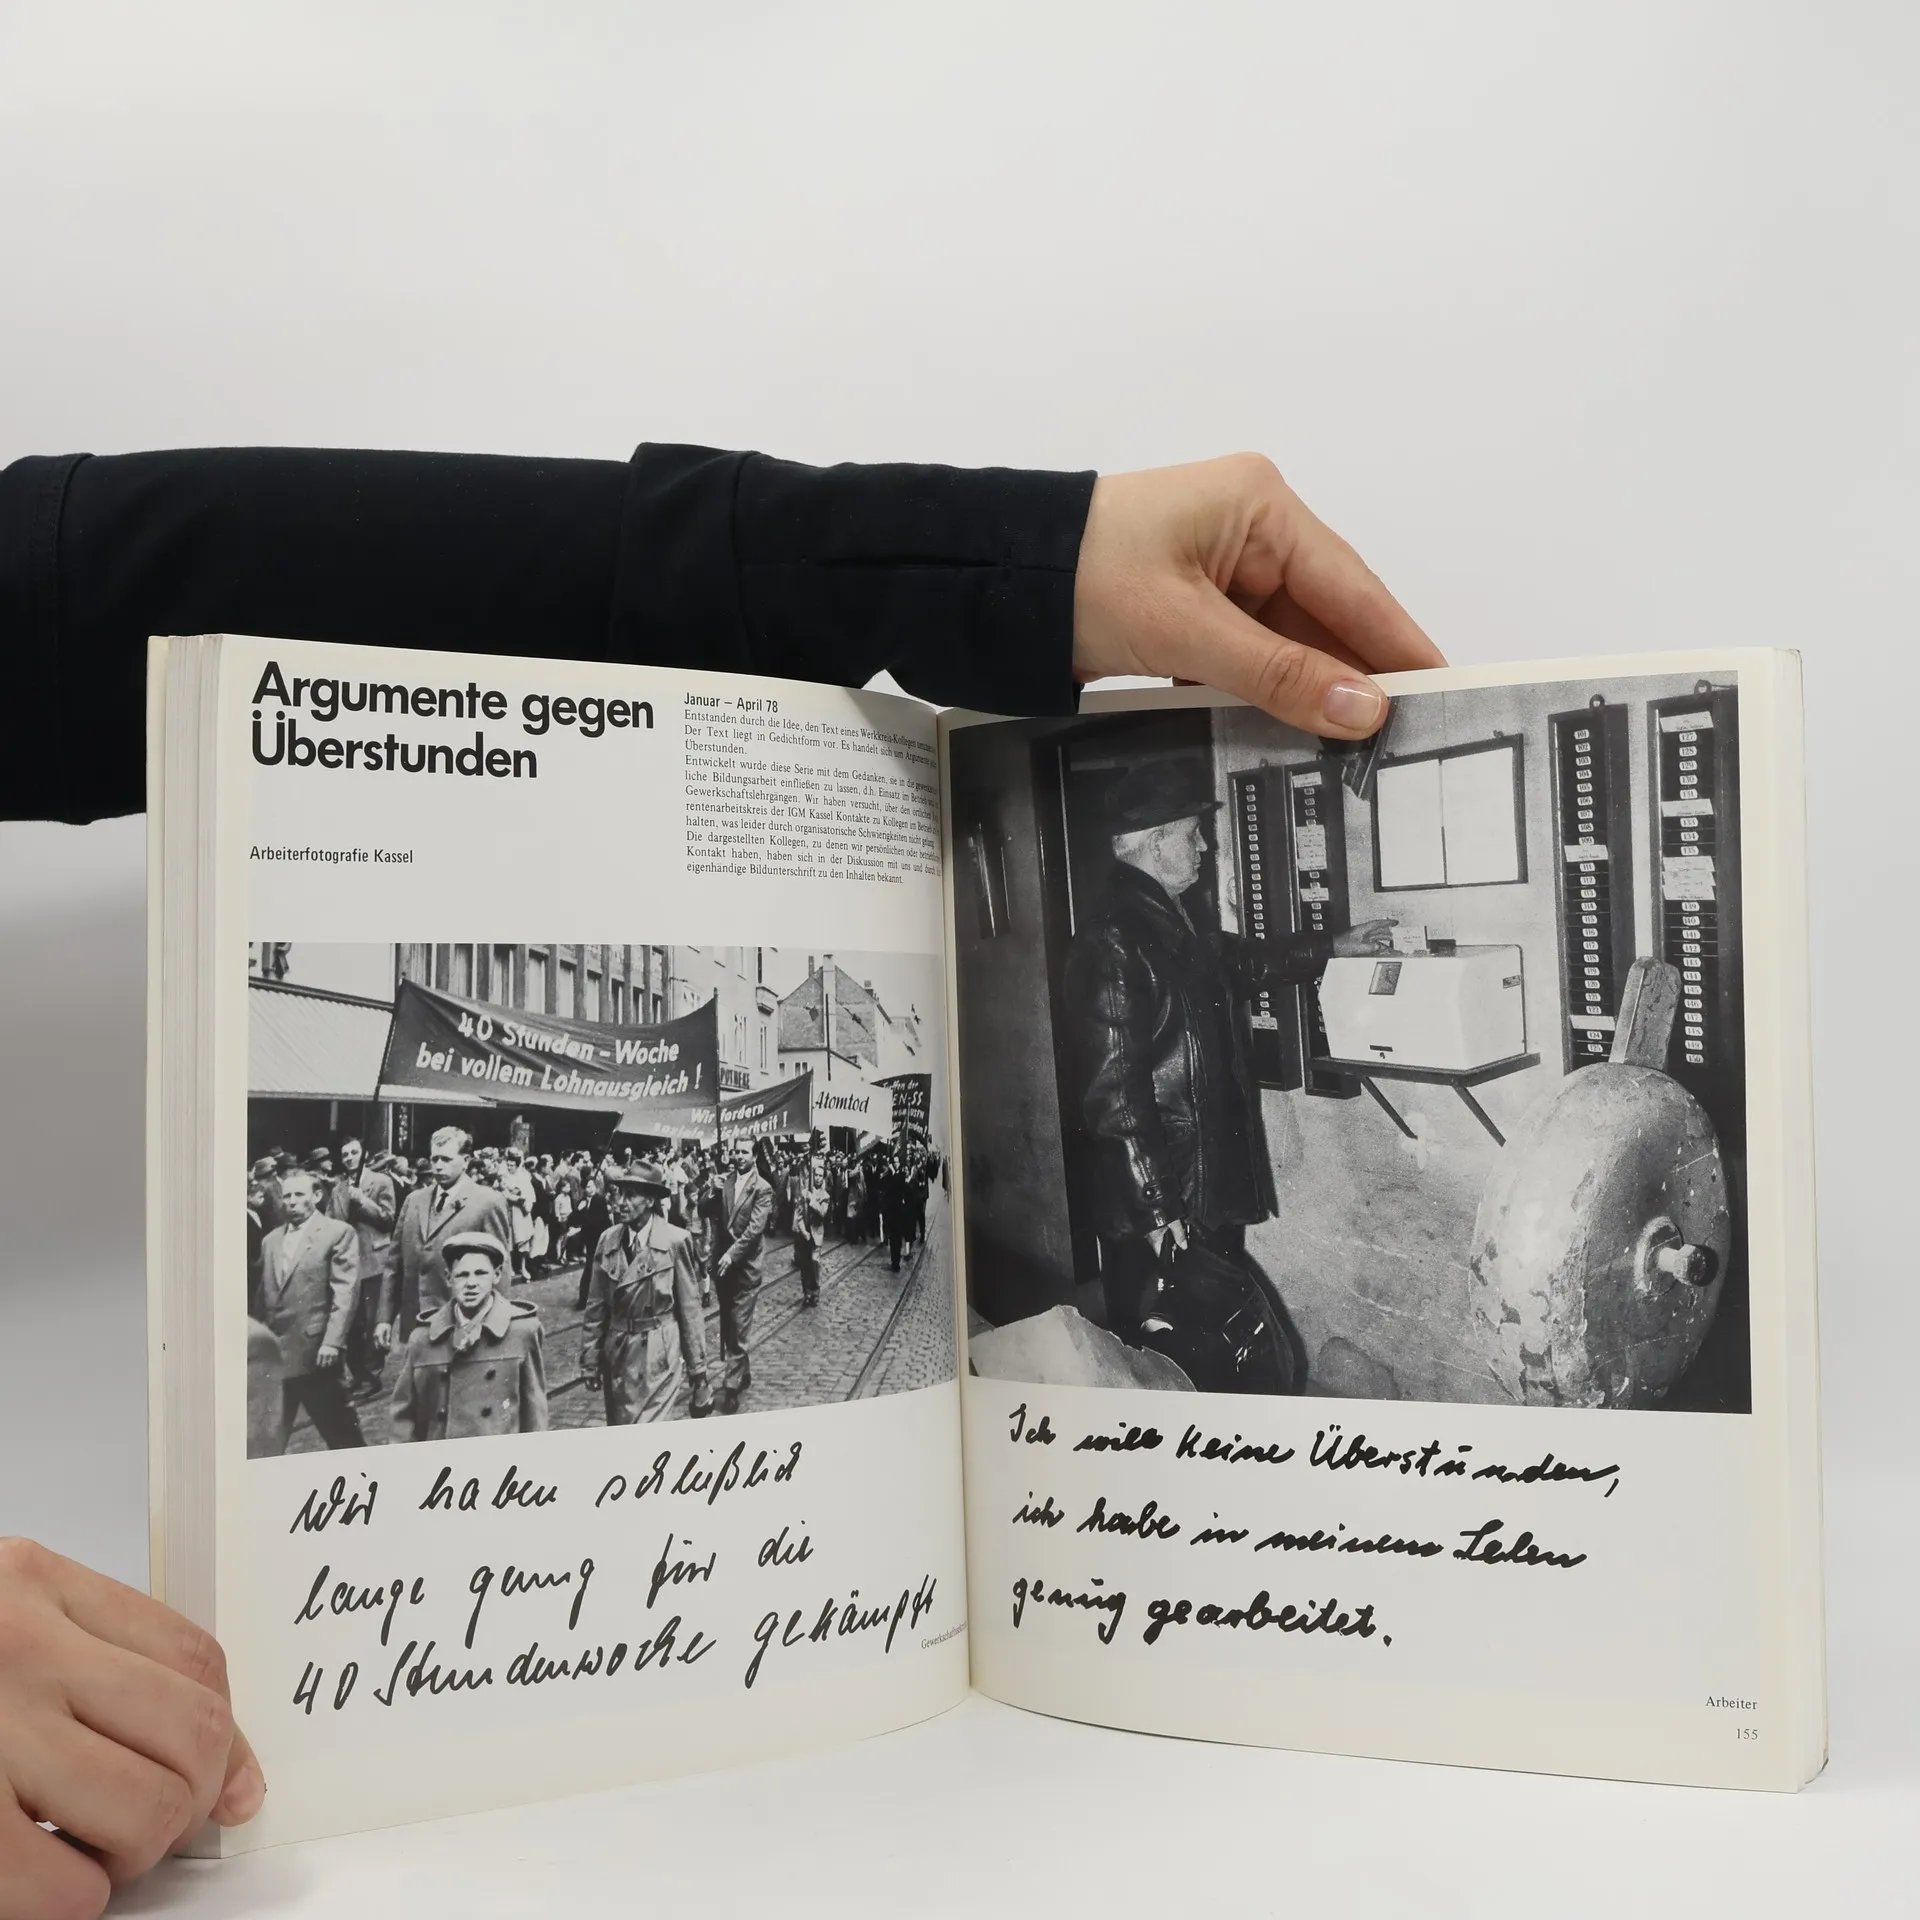 Argumente gegen
Überstunden
Arbeiterfotografie Kassel
Januar – April 78
Entstanden durch die Idee, den Text eines Werkkreis-Kollegen
Der Text liegt in Gedichtform vor. Es handelt sich um Argumente
Überstunden.
Entwickelt wurde diese Serie mit dem Gedanken, sie in die
liche Bildungsarbeit einfließen zu lassen, d.h. Einsatz im
Gewerkschaftslehrgängen. Wir haben versucht, über den
rentenarbeitskreis der IGM Kassel Kontakte zu Kollegen im
halten, was leider durch organisatorische Schwierigkeiten nicht
Die dargestellten Kollegen, zu denen wir persönlichen oder
Kontakt haben, haben sich in der Diskussion mit uns und durch
eigenhändige Bildunterschrift zu den Inhalten bekannt.
40 Stunden-Woche
bei vollem Lohnausgleich!
Wir fordern
Atomtod
Wir haben schließlich
lange genug für die
40 Stundenwoche gekämpft
Ich will keine Überstunden,
ich habe in meinem Leben
genug gearbeitet.
Arbeiter
155